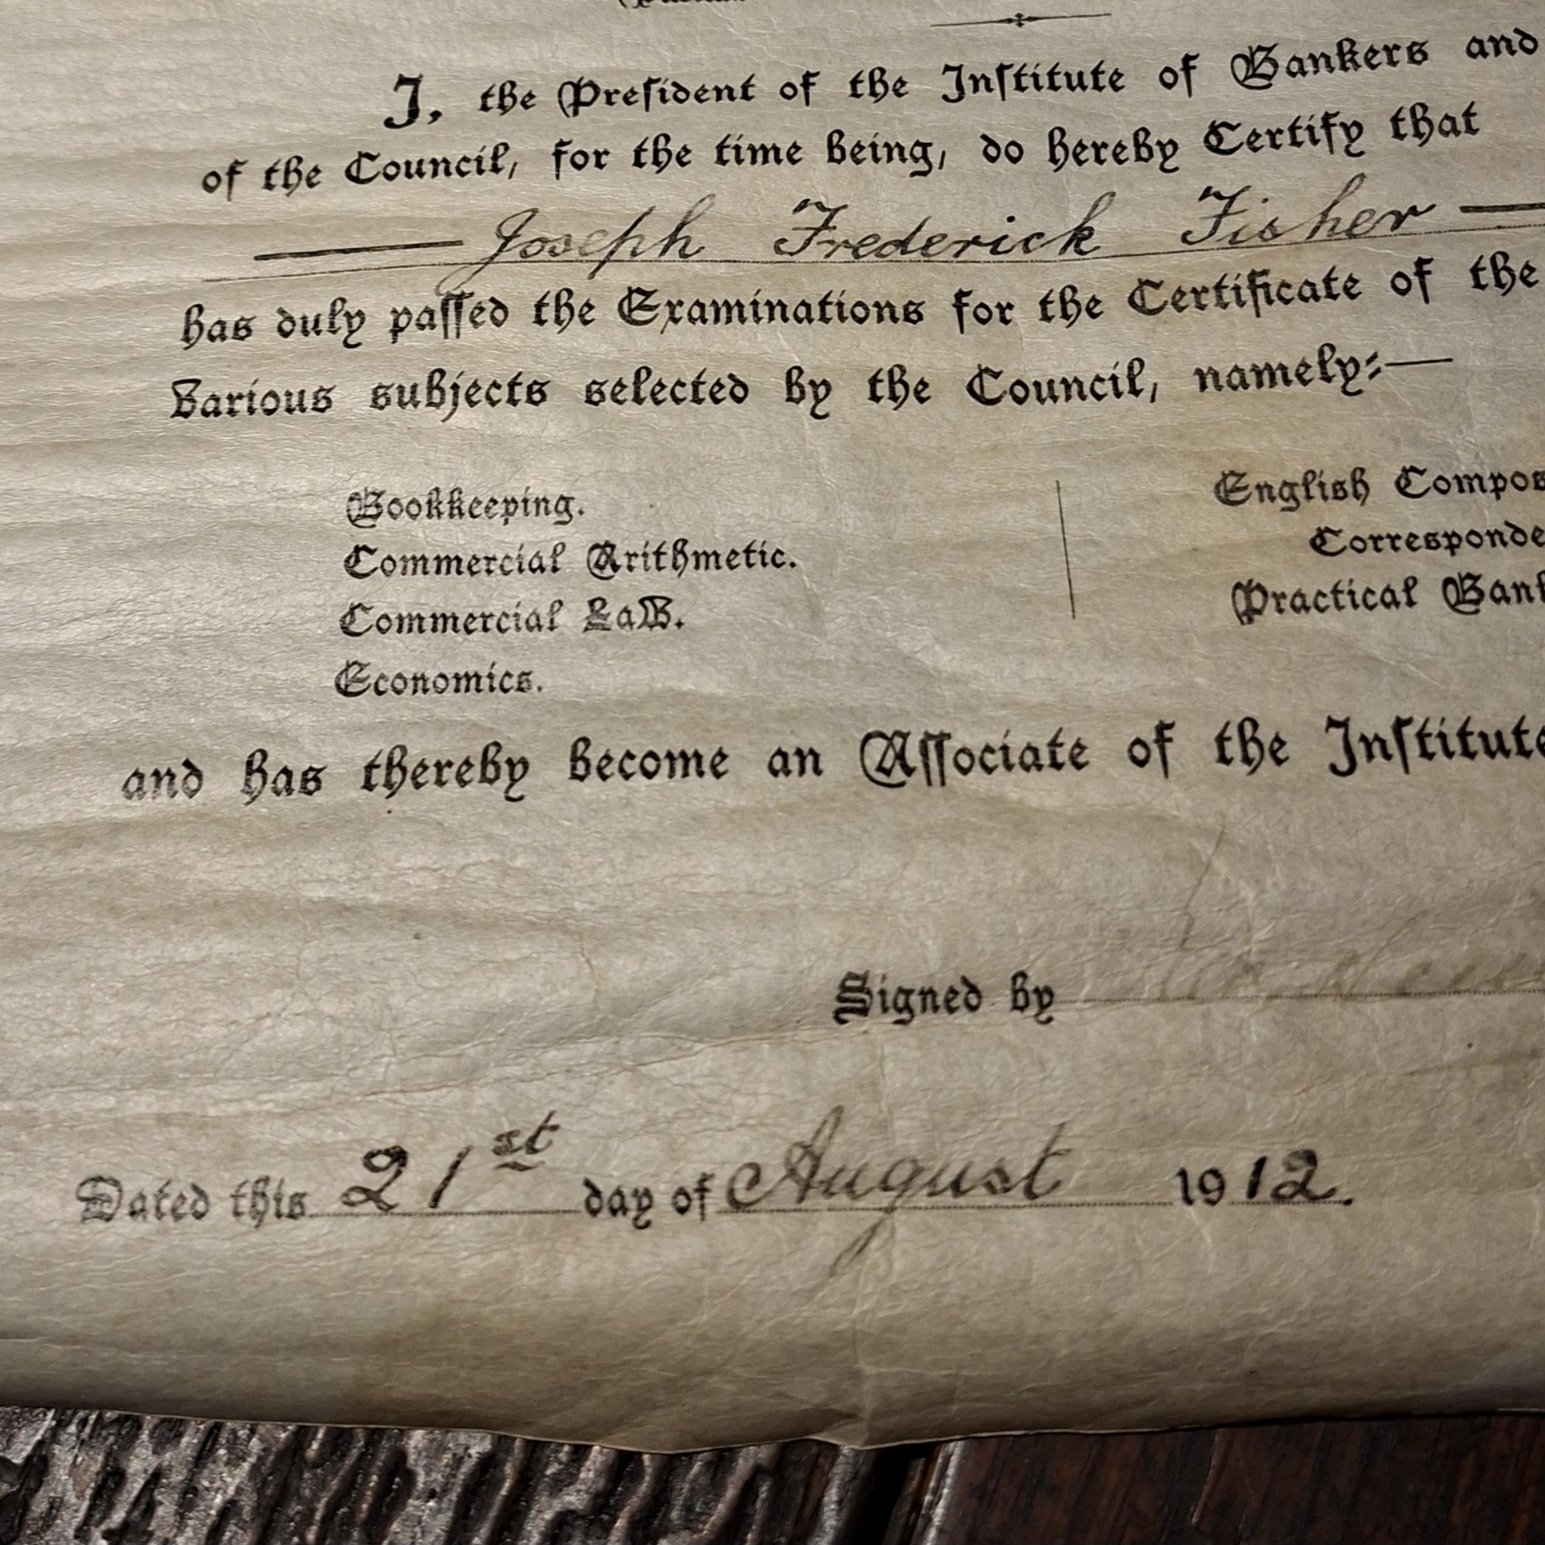 I, the President of the Institute of Bankers and
of the Council, for the time being, do hereby Certify that
Joseph Frederick Fisher
has duly passed the Examinations for the Certificate of the
Various subjects selected by the Council, namely:—
Bookkeeping.
Commercial Arithmetic.
Commercial Law.
Economics.
English Compos
Corresponde
Practical Bank
and has thereby become an Associate of the Institute
Signed by
Dated this 21st day of August 1912.